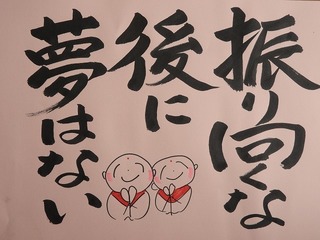 振り向くな
後に
夢はない